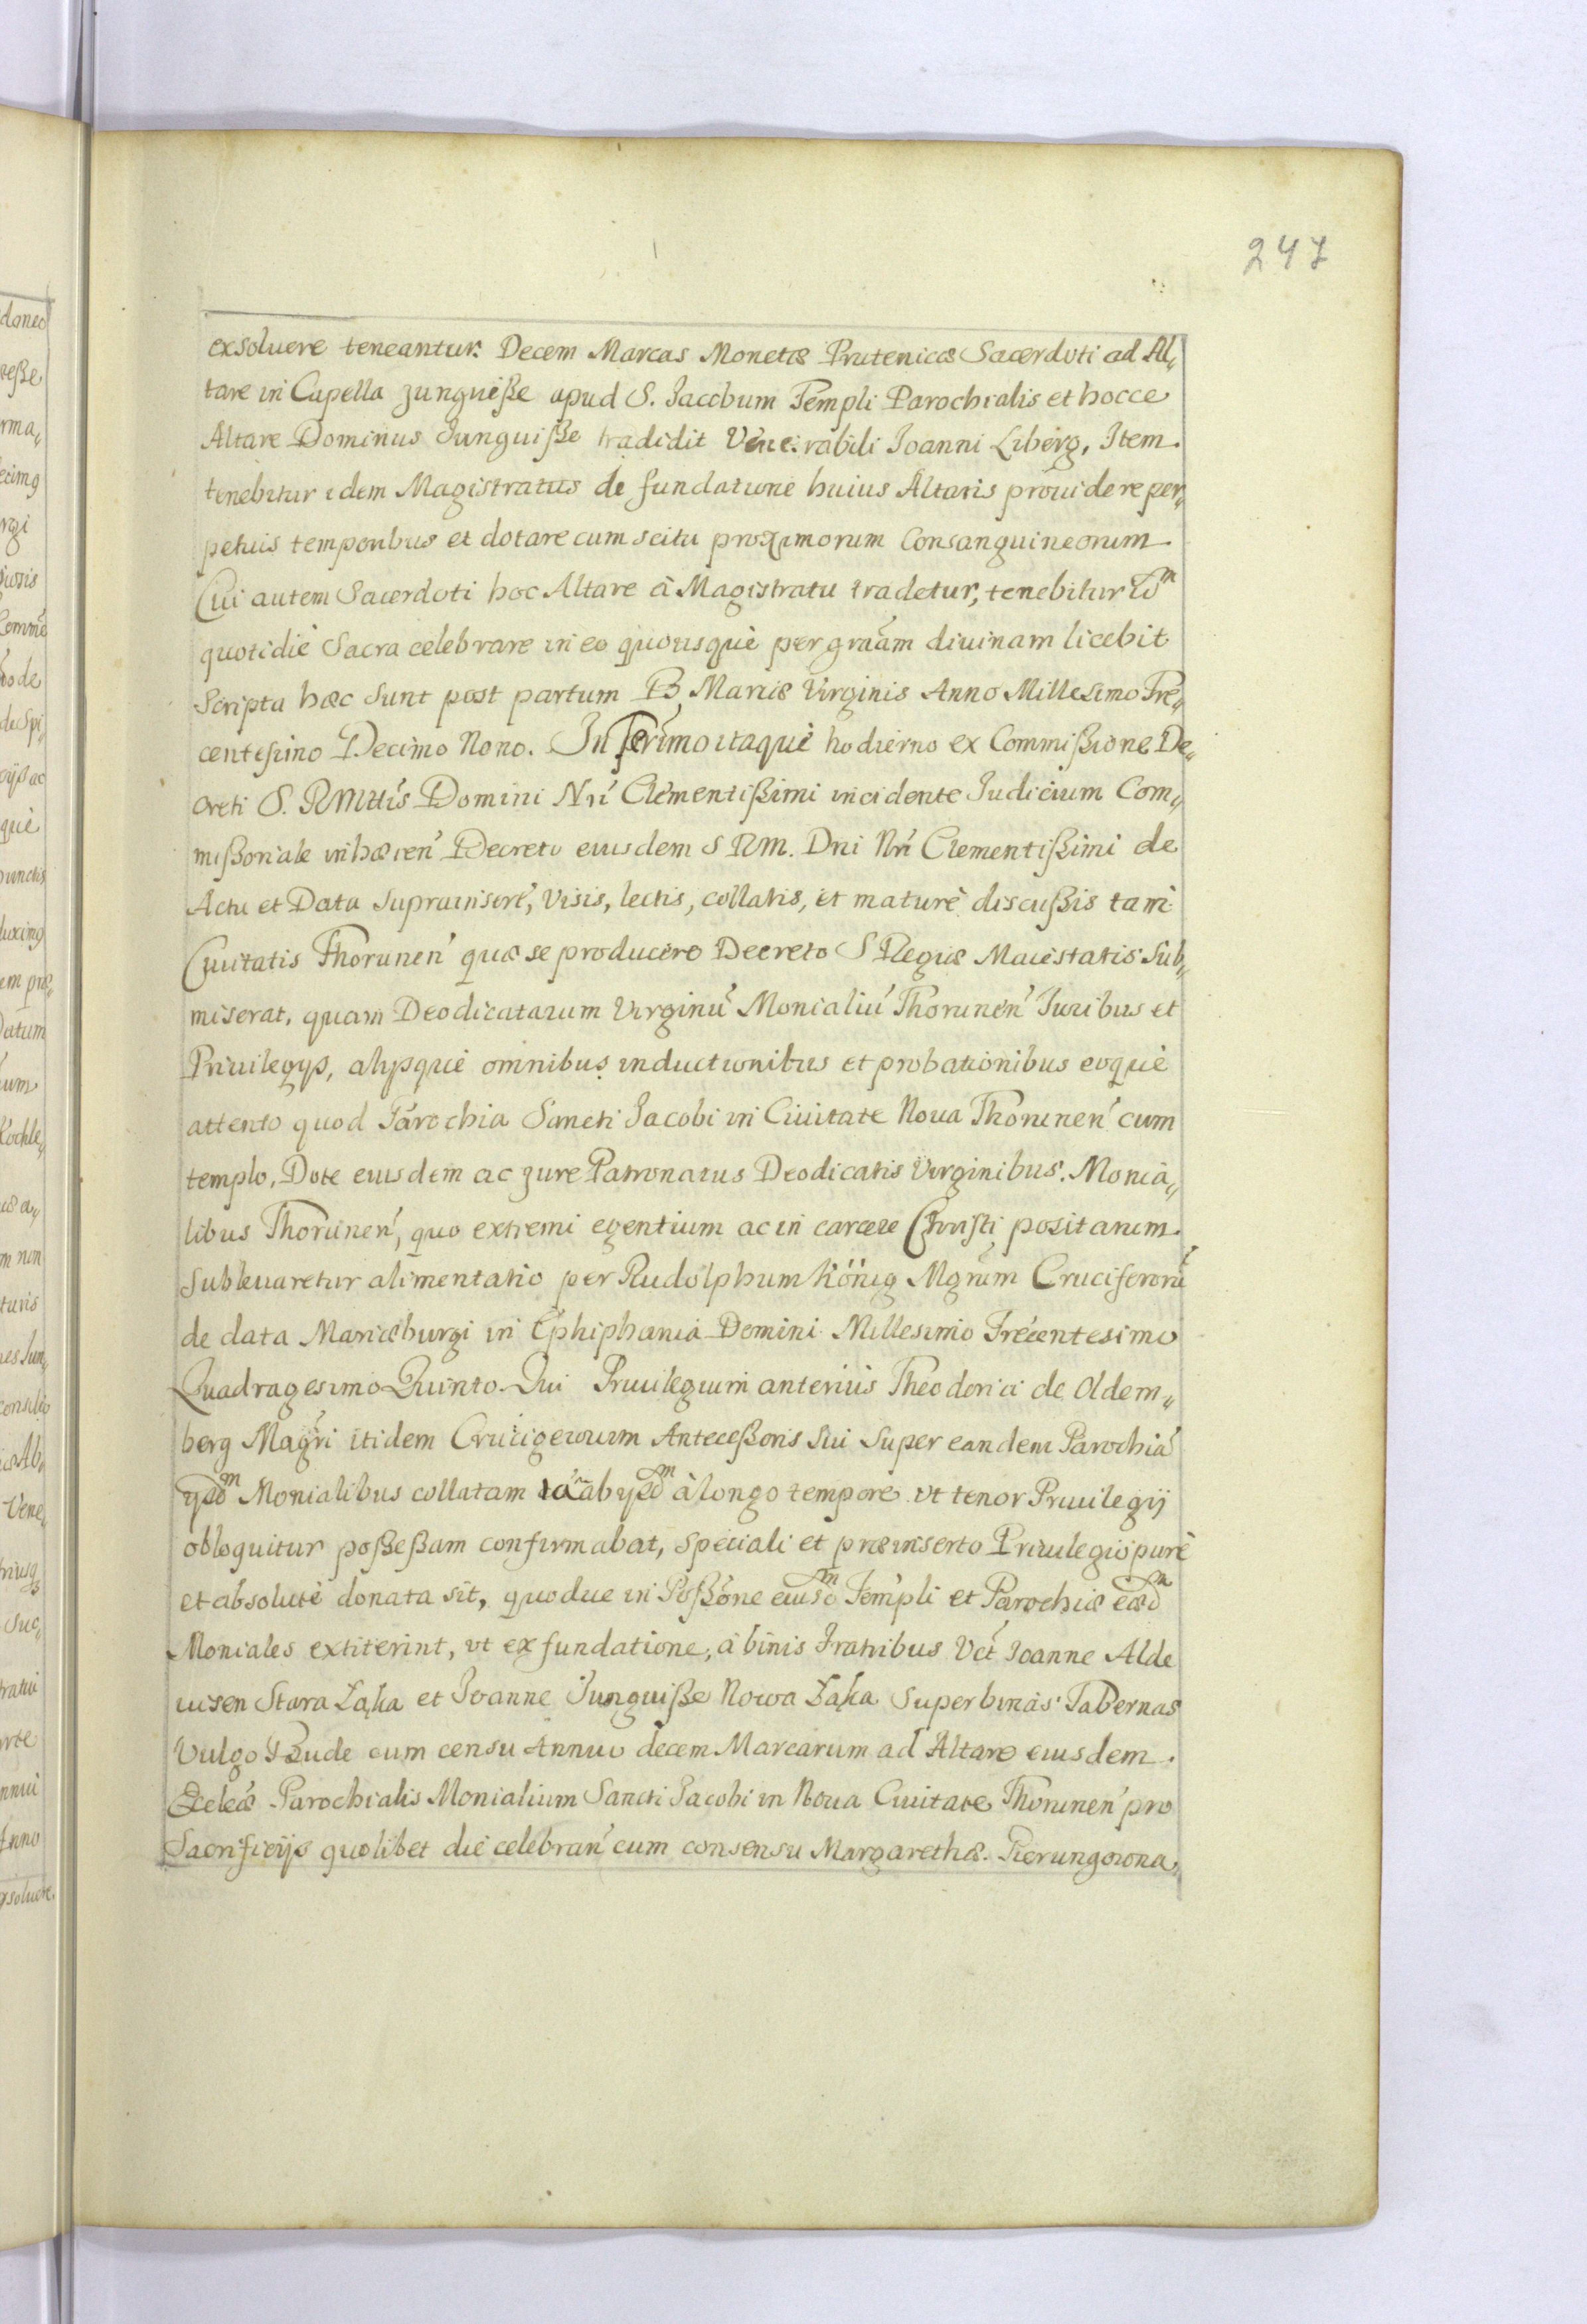 247
exsoluere teneantur. Decem Marcas Monetæ Prutenicæ Sacerdoti ad Al„
tare in Capella Junguiße apud S. Jacobum Templi Parochialis et hocce
Altare Dominus Junguiße tradidit Venerabili Joanni Liberg, Item
tenebitur idem Magistratus de fundatione huius Altaris prouidere per„
petuis temporibus et dotare cum scitu proximorum Consanguineorum
Cui autem Sacerdoti hoc Altare à Magistratu tradetur, tenebitur idᵐ
quotidiè Sacra celebrare in eo quousquè per grãam diuinam licebit
Scripta hæc sunt post partum B. Mariæ Virginis Anno Millesimo Tre„
centesimo Decimo Nono. In Termo itaquè hodierno ex Commißione De„
creti S. RMttis Domini Nri Clementißimi incidente Judicium Com„
mißoriale inhæren̄ Decreto eiusdem S RM. Dni Nri Clementißimi de
Actu et Data suprainsert̄, Visis, lectis, collatis, et maturè discußis tam
Ciuitatis Thorunen̄ quæ se producere Decreto S Regiæ Maiestatis sub„
miserat, quam Deodicatarum Virginū Monialiū Thorunen̄ Juribus et
Priuilegijs, alijsquè omnibus inductionibus et probationibus eoquè
attento quod Parochia Sancti Jacobi in Ciuitate Noua Thorunen̄ cum
templo, Dote eiusdem ac jure Patronatus Deodicatis Virginibus Monia„
libus Thorunen̄, quo extremi egentium ac in carcere Christi positarum
subleuaretur alimentatio per Rudolphum König Mgrum Cruciferorū
de data Mariæburgi in Ephiphania Domini Millesimo Trecentesimo
Quadragesimo Quinto. Qui Priuilegium anterius Theodorici de Oldem„
berg Magri itidem Crucigerorum Anteceßoris sui super eandem Parochiā
ijsdᵐ Monialibus collatam ab ijsdᵐ à longo tempore vt tenor Priuilegij
obloquitur poßeßam confirmabat, speciali et præinserto Priuilegio purè
et absolutè donata sit, quodue in Poßone eiusdᵐ Templi et Parochiæ eædᵐ
Moniales extiterint, vt ex fundatione, à binis Fratribus Vct Joanne Alde
uisen Stara Łąka et Joanne Junguiße Nowa Łąka super binas Tabernas
Vulgo Bude cum censu Annuo decem Marcarum ad Altare eiusdem
Ecclæ Parochialis Monialium Sancti Jacobi in Noua Ciuitate Thorunen̄ pro
Sacrificijs quolibet die celebran̄ cum consensu Margarethæ Pierungowna„